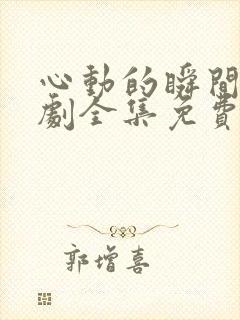 心動的瞬間
劇全集免費
郭增喜